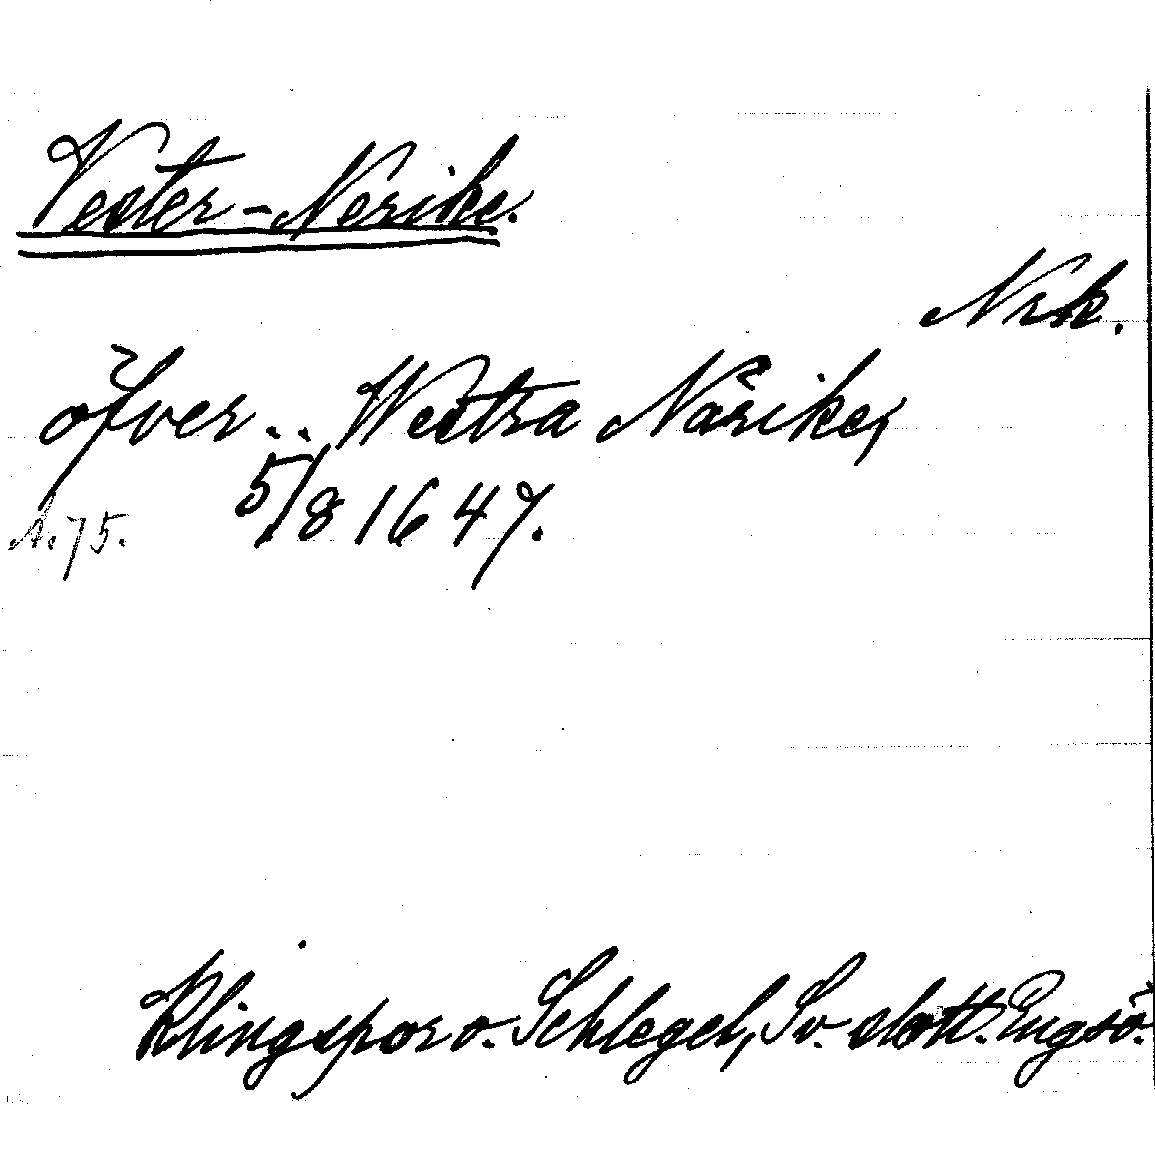 Vester-Nerike.
Nrk.
öfver.. Westra Närike,
5/8 1647.
s. 75.
Klingspor o. Schlegel, Sv. slott. Engsö.